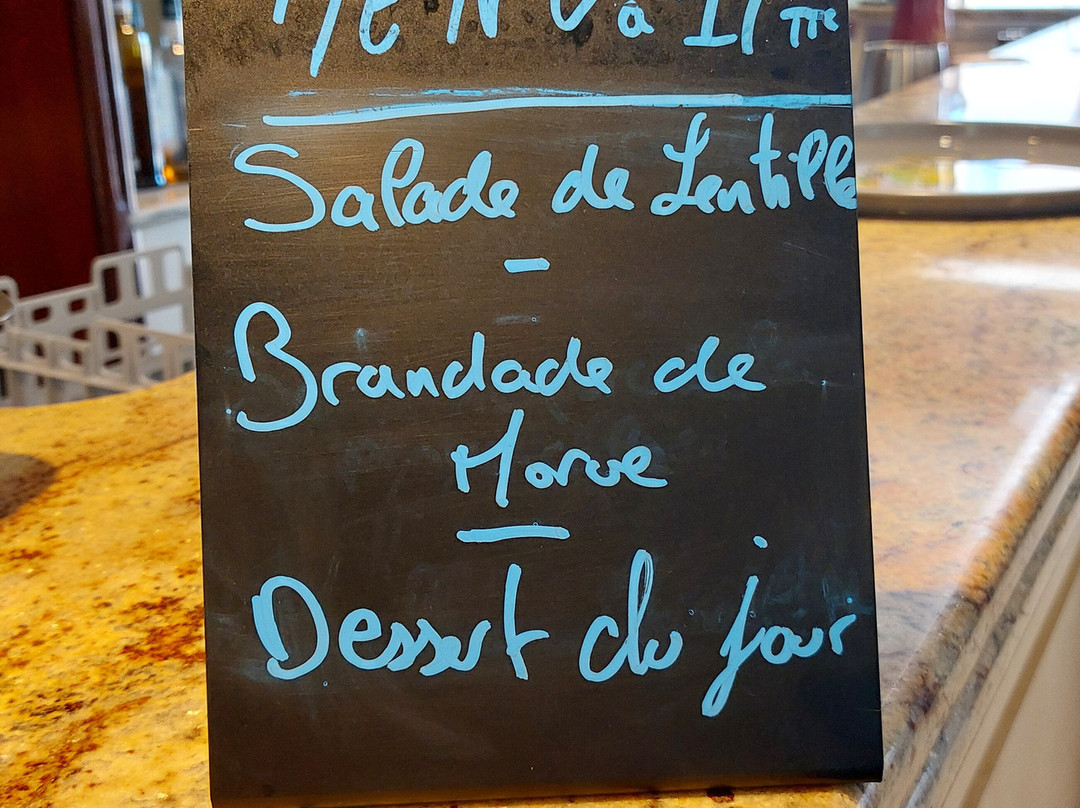 MENU à 17 TTC
Salade de Lentille
-
Brandade de
Morue
-
Dessert du jour